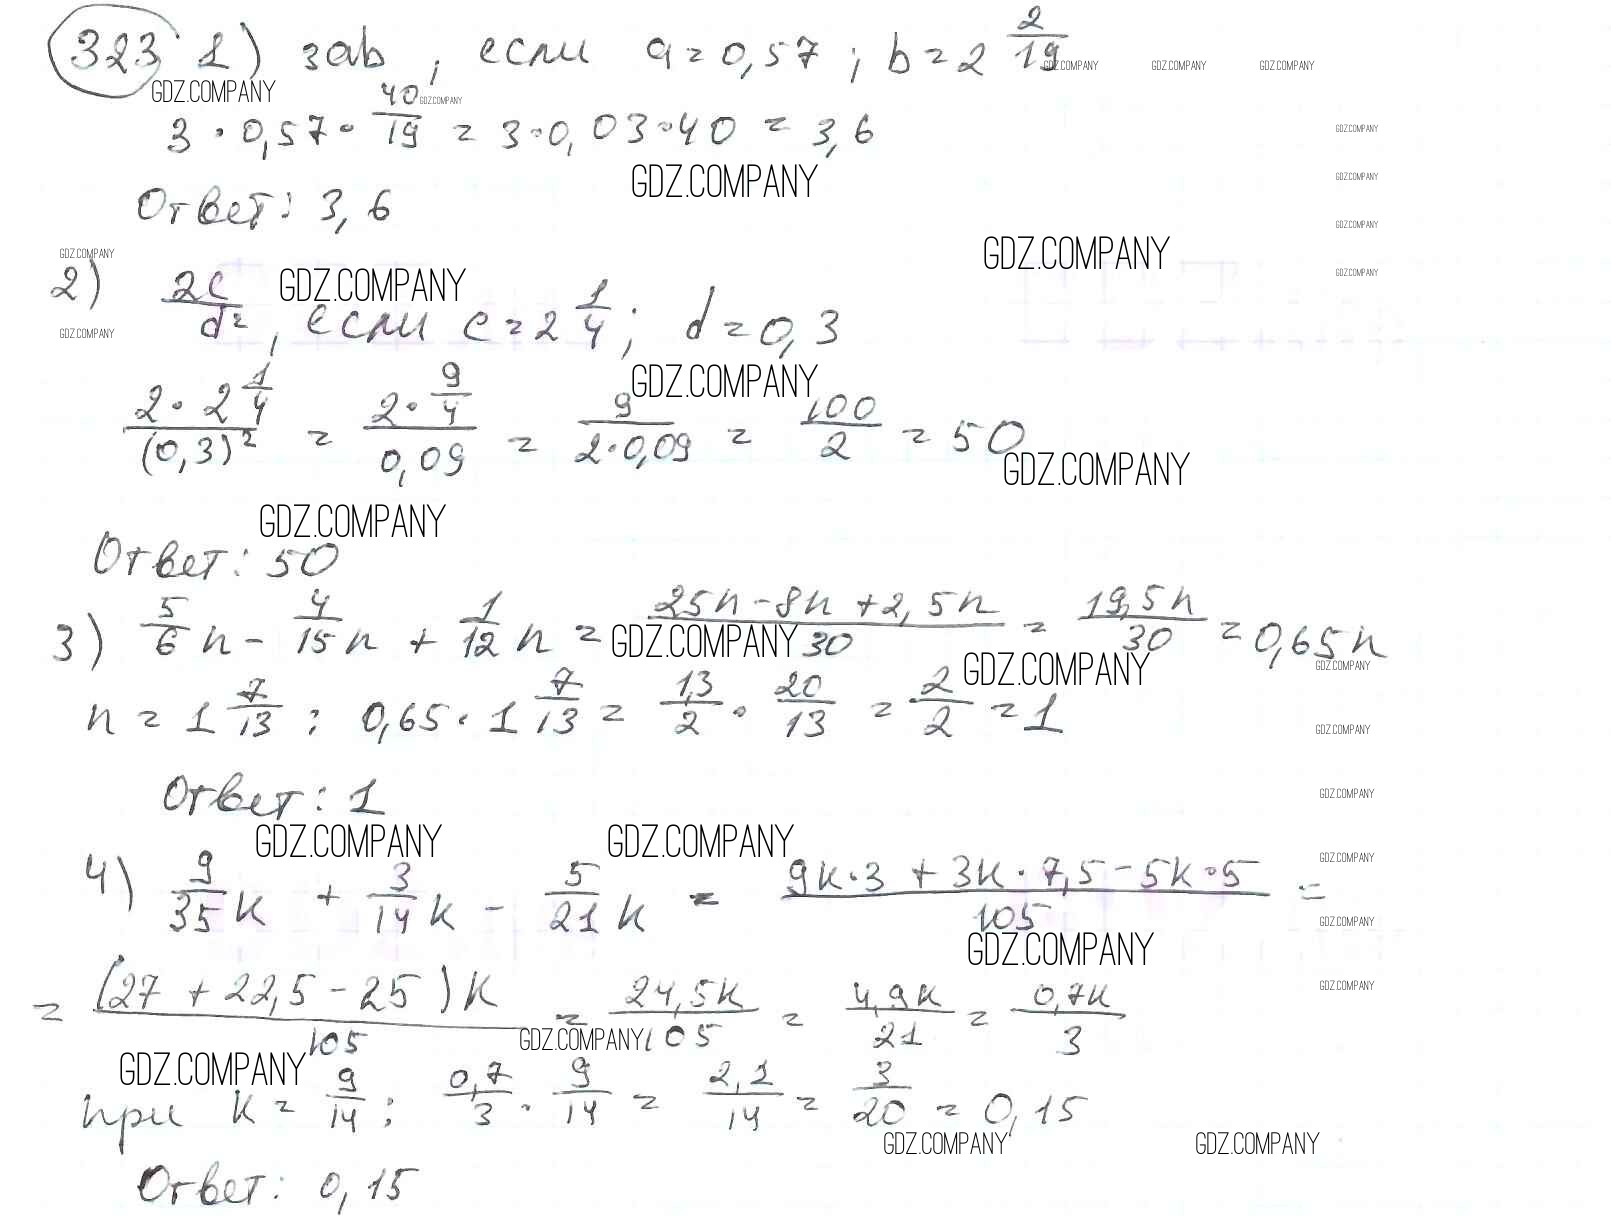 323 1) 3ab, если a=0,57; b=2 2/19
GDZ.COMPANY GDZ.COMPANY GDZ.COMPANY GDZ.COMPANY GDZ.COMPANY
3·0,57·40/19 = 3·0,03·40 = 3,6 GDZ.COMPANY
GDZ.COMPANY GDZ.COMPANY
Ответ: 3,6 GDZ.COMPANY
GDZ.COMPANY GDZ.COMPANY GDZ.COMPANY GDZ.COMPANY
2) 2c/d², если c=2 1/4; d=0,3
GDZ.COMPANY GDZ.COMPANY
2·2 1/4/(0,3)² = 2·9/4/0,09 = 9/2·0,09 = 100/2 = 50
GDZ.COMPANY
GDZ.COMPANY
Ответ: 50
3) 5/6 n - 4/15 n + 1/12 n = 25n-8n+2,5n/30 = 19,5n/30 = 0,65n
GDZ.COMPANY GDZ.COMPANY GDZ.COMPANY
n=1 7/13: 0,65·1 7/13 = 1,3/2·20/13 = 2/2 = 1 GDZ.COMPANY
Ответ: 1 GDZ.COMPANY
GDZ.COMPANY GDZ.COMPANY GDZ.COMPANY
4) 9/35 k + 3/14 k - 5/21 k = 9k·3+3k·7,5-5k·5/105 =
GDZ.COMPANY GDZ.COMPANY
= (27+22,5-25)k/105 = 24,5k/105 = 4,9k/21 = 0,7k/3 GDZ.COMPANY
GDZ.COMPANY GDZ.COMPANY
при k=9/14: 0,7/3·9/14 = 2,1/14 = 3/20 = 0,15
GDZ.COMPANY GDZ.COMPANY
Ответ: 0,15